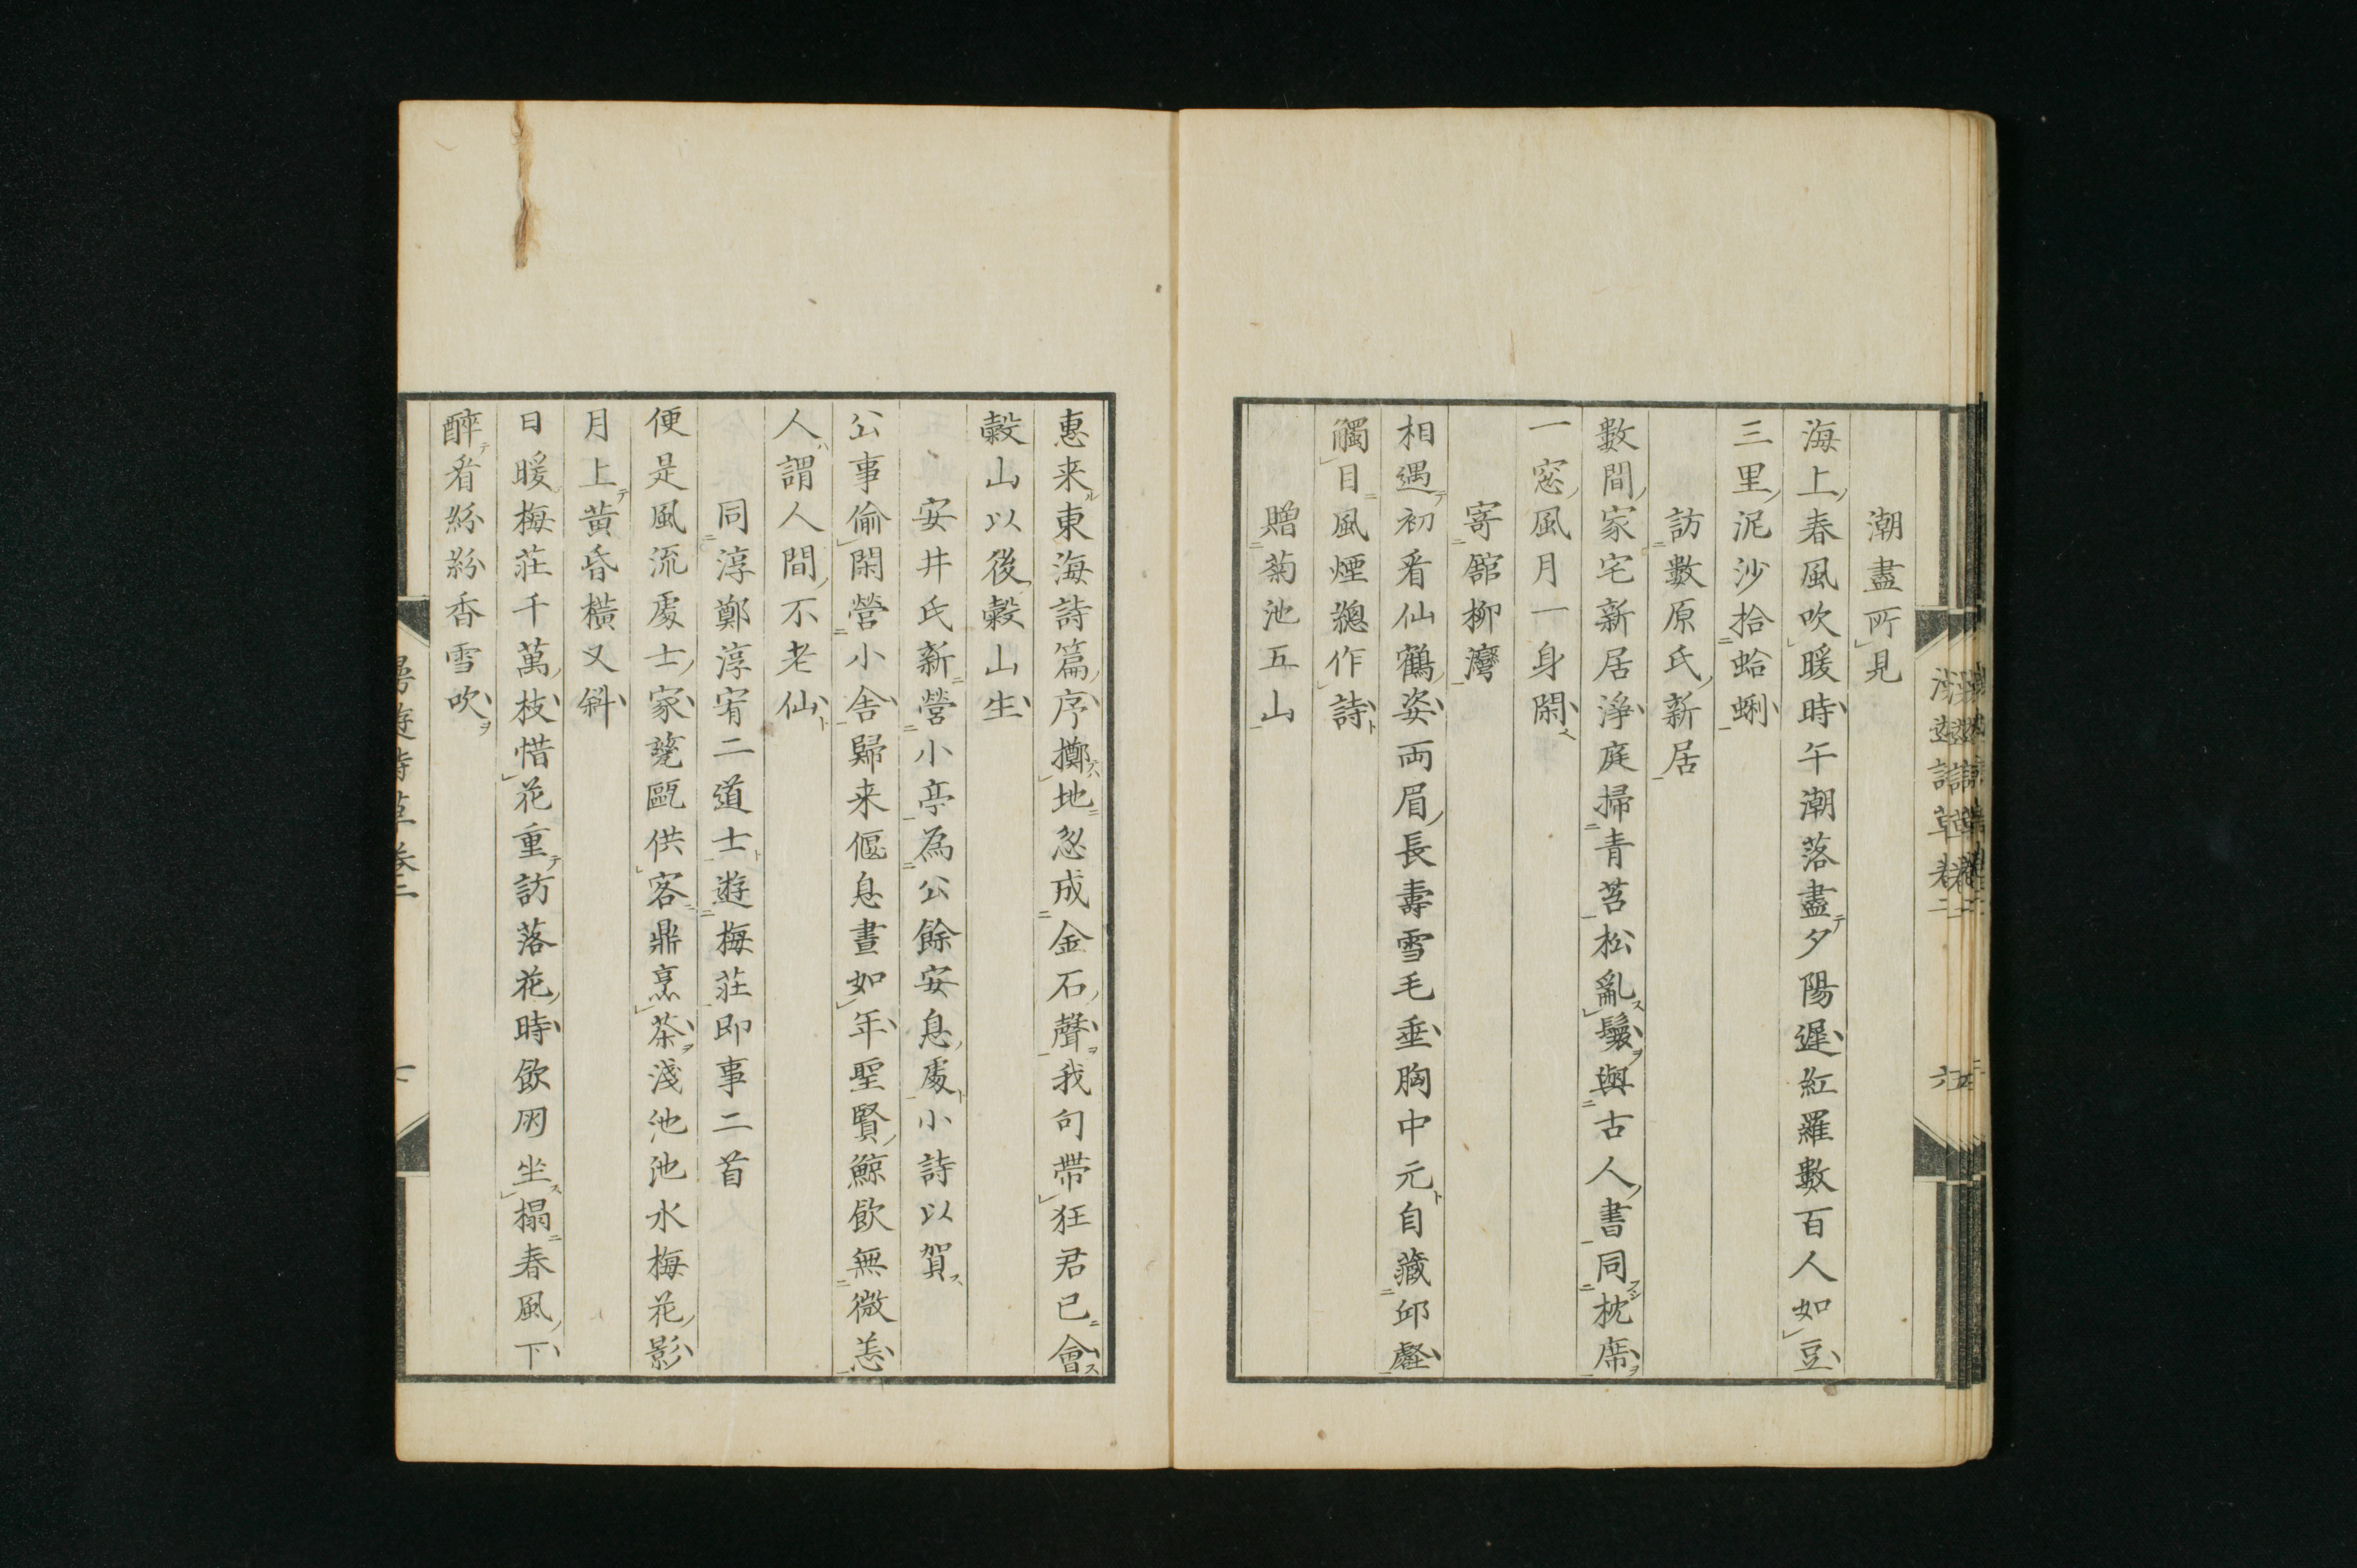 潮盡所見
海上春風吹暖時午潮落盡夕陽遲紅羅數百人如豆
三里泥沙拾蛤蜊
訪數原氏新居
數間家宅新居淨庭掃青苔松亂鬟與古人書同枕席
一窓風月一身閑
寄舘柳灣
相遇初看仙鶴姿両眉長壽雪毛垂胸中元自藏邱壑
觸目風煙總作詩
贈菊池五山
惠来東海詩篇序擲地忽成金石聲我句帶狂君已會
穀山以後穀山生
安井氏新營小亭為公餘安息處小詩以賀
公事偷閑營小舎歸来偃息晝如年聖賢鯨飲無微恙
人謂人間不老仙
同淳鄭淳宥二道士遊梅莊即事二首
便是風流處士家甆甌供客鼎烹茶淺池池水梅花影
月上黄昏橫又斜
日暖梅莊千萬枝惜花重訪落花時飲朋坐榻春風下
醉看紛紛香雪吹